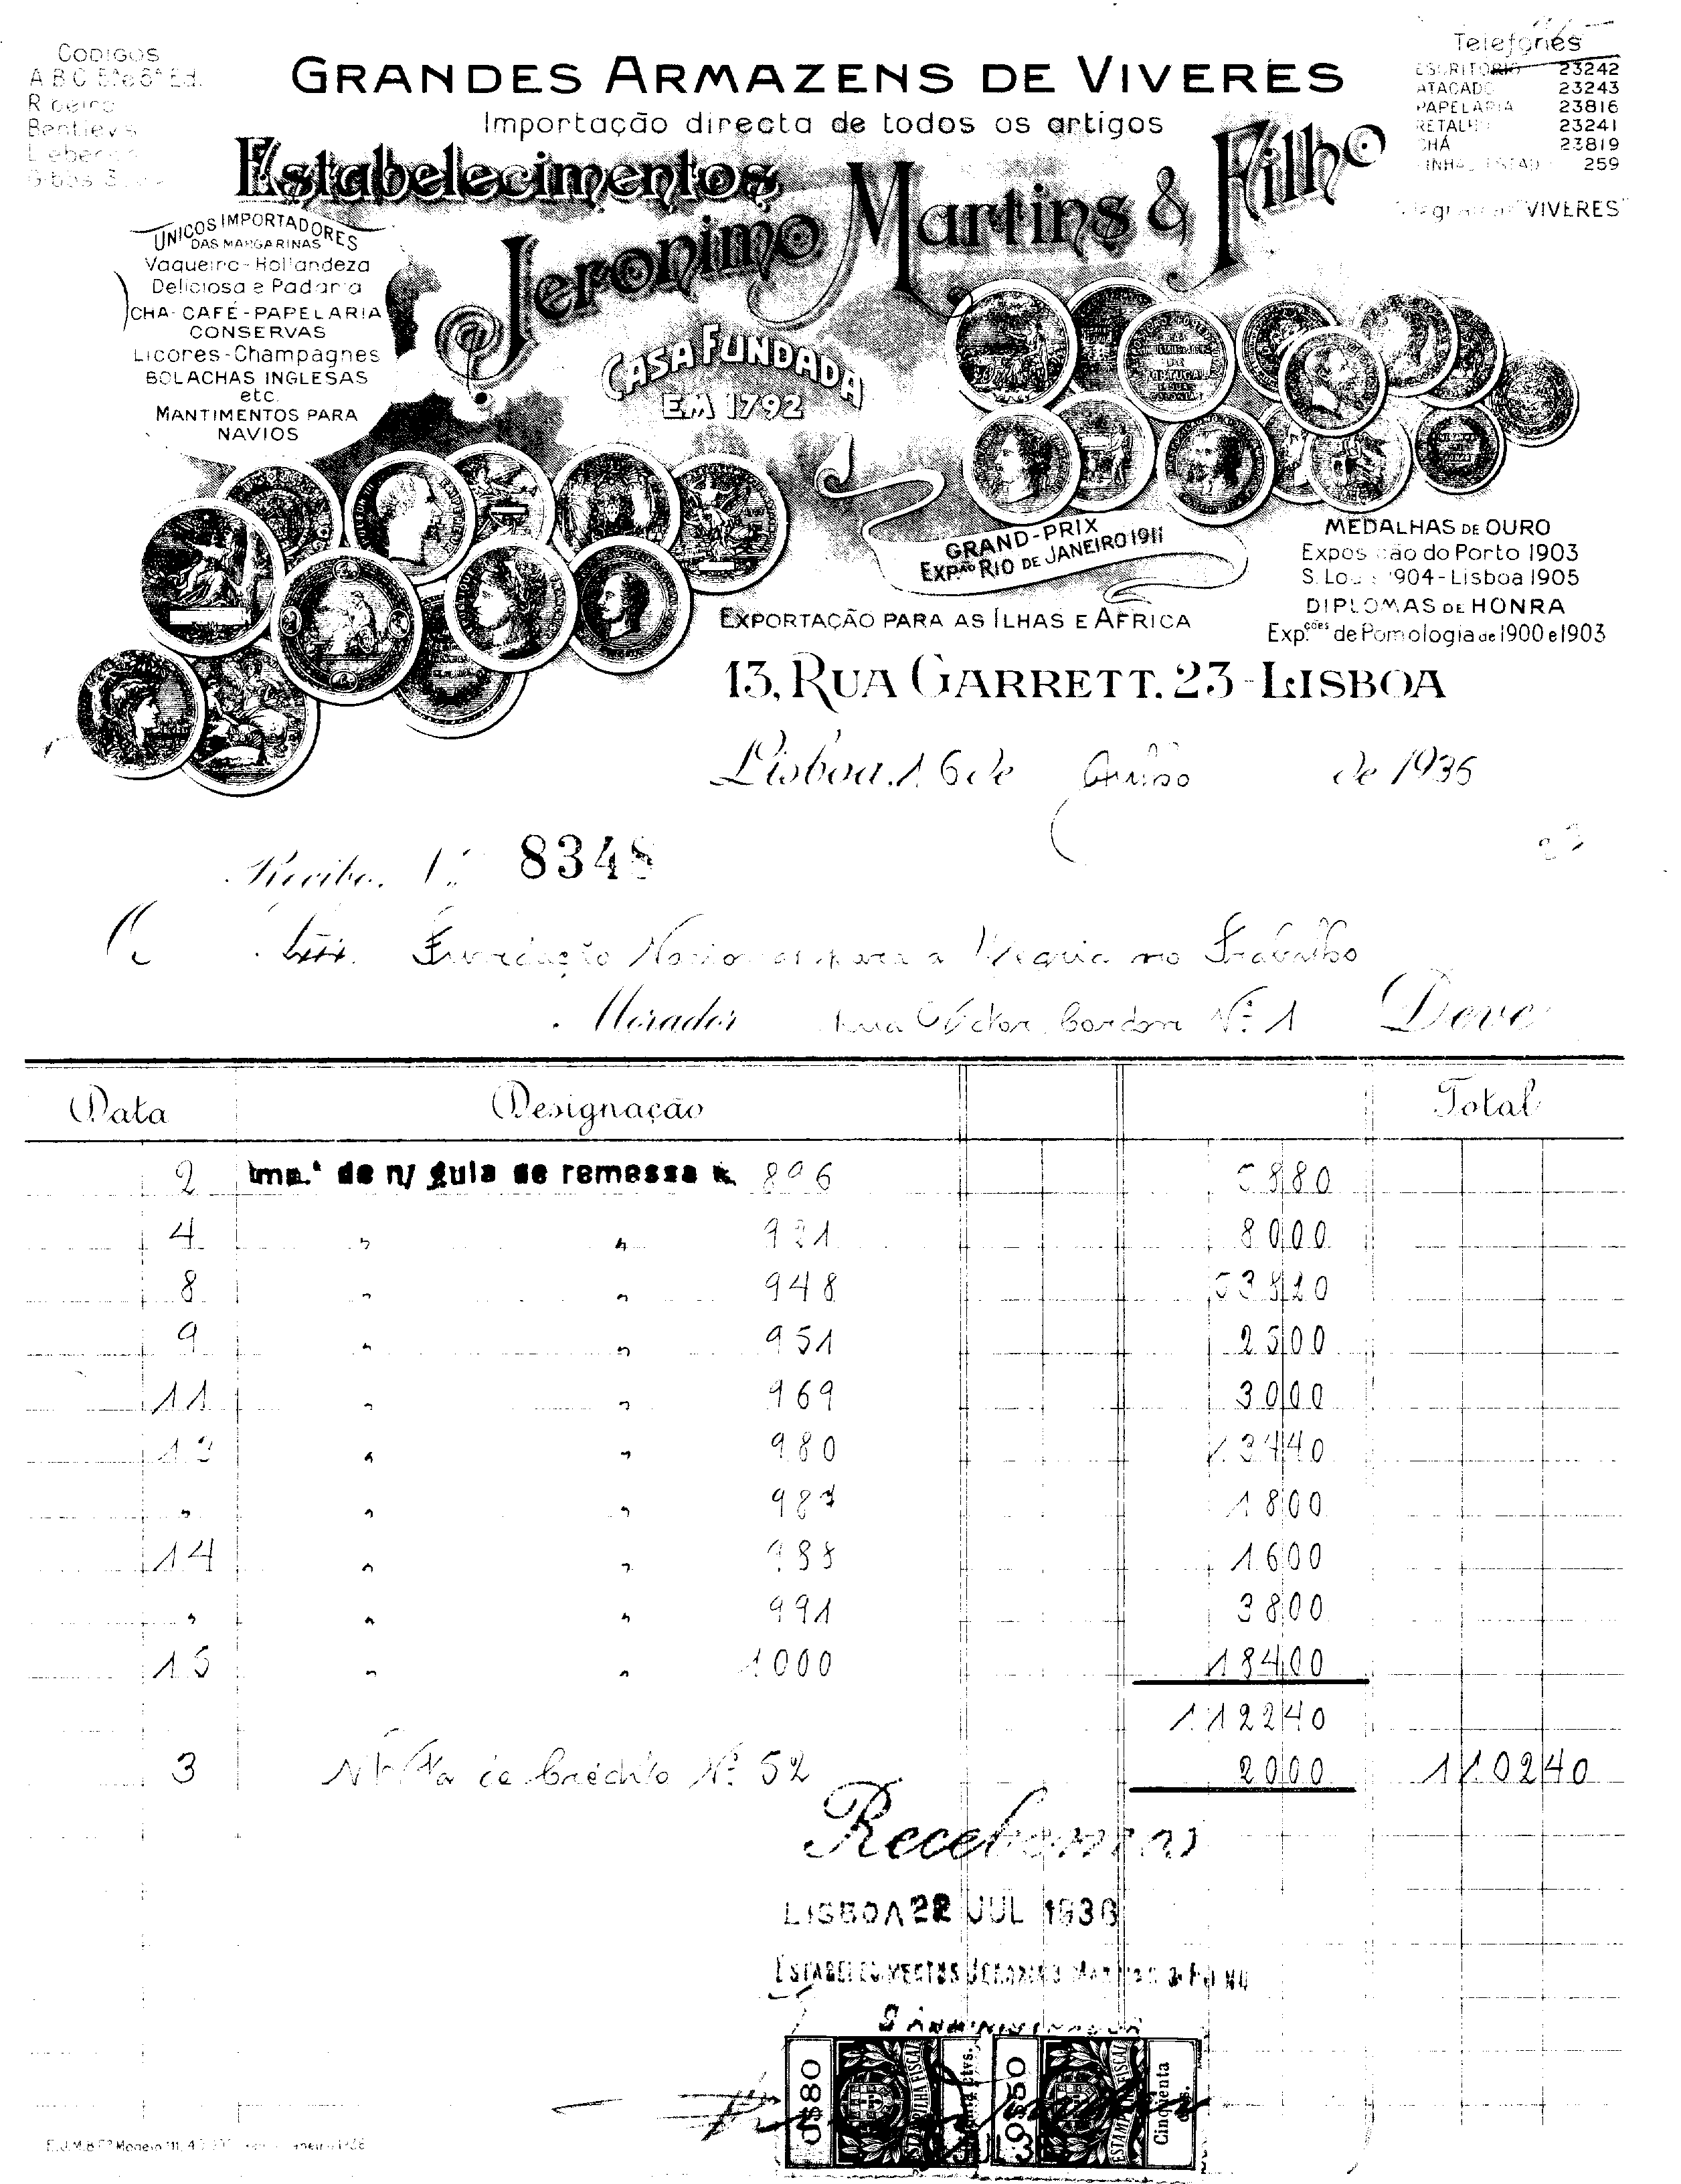 CODIGOS
A B C 5ª e 6ª Ed.
Ribeiro
Bentley's
Lieber
Telefones
ESCRITORIO 23242
ATACADO 23243
PAPELARIA 23816
RETALHO 23241
CHÁ 23819
259
"VIVERES"
GRANDES ARMAZENS DE VIVERES
Importação directa de todos os artigos
Estabelecimentos
Jeronimo Martins & Filho
CASA FUNDADA
EM 1792
UNICOS IMPORTADORES
DAS MARGARINAS
Vaqueiro-Hollandeza
Deliciosa e Padaria
CHA-CAFÉ-PAPELARIA
CONSERVAS
Licores-Champagnes
BOLACHAS INGLESAS
etc.
MANTIMENTOS PARA
NAVIOS
GRAND-PRIX
EXP.ÃO RIO DE JANEIRO 1911
MEDALHAS DE OURO
Exposição do Porto 1903
S. Louis 1904-Lisboa 1905
DIPLOMAS DE HONRA
Exp.ções de Pomologia de 1900 e 1903
EXPORTAÇÃO PARA AS ILHAS E AFRICA
13, RUA GARRETT, 23-LISBOA
Lisboa, 16 de Julho de 1936
Recibo N.º 8348
Fundação Nacional para a Alegria no Trabalho
Morador Rua Victor Cordon Nº 1 Deve
Data Designação Total
2 Imp.ª de n/ guia de remessa n. 896 5880
4 " " 921 8000
8 " " 948 53820
9 " " 951 2500
11 " " 969 3000
13 " " 980 13440
" " " 987 1800
14 " " 988 1600
" " " 991 3800
15 " " 1000 18400
112240
3 N/ Nota de Crédito Nº 52 2000 110240
Recebemos
LISBOA 22 JUL 1936
ESTABELECIMENTOS JERONIMO MARTINS & FILHO
O ADMINISTRADOR
0$80
ESTAMPILHA FISCAL
0$50
ESTAMPILHA FISCAL
Cinquenta